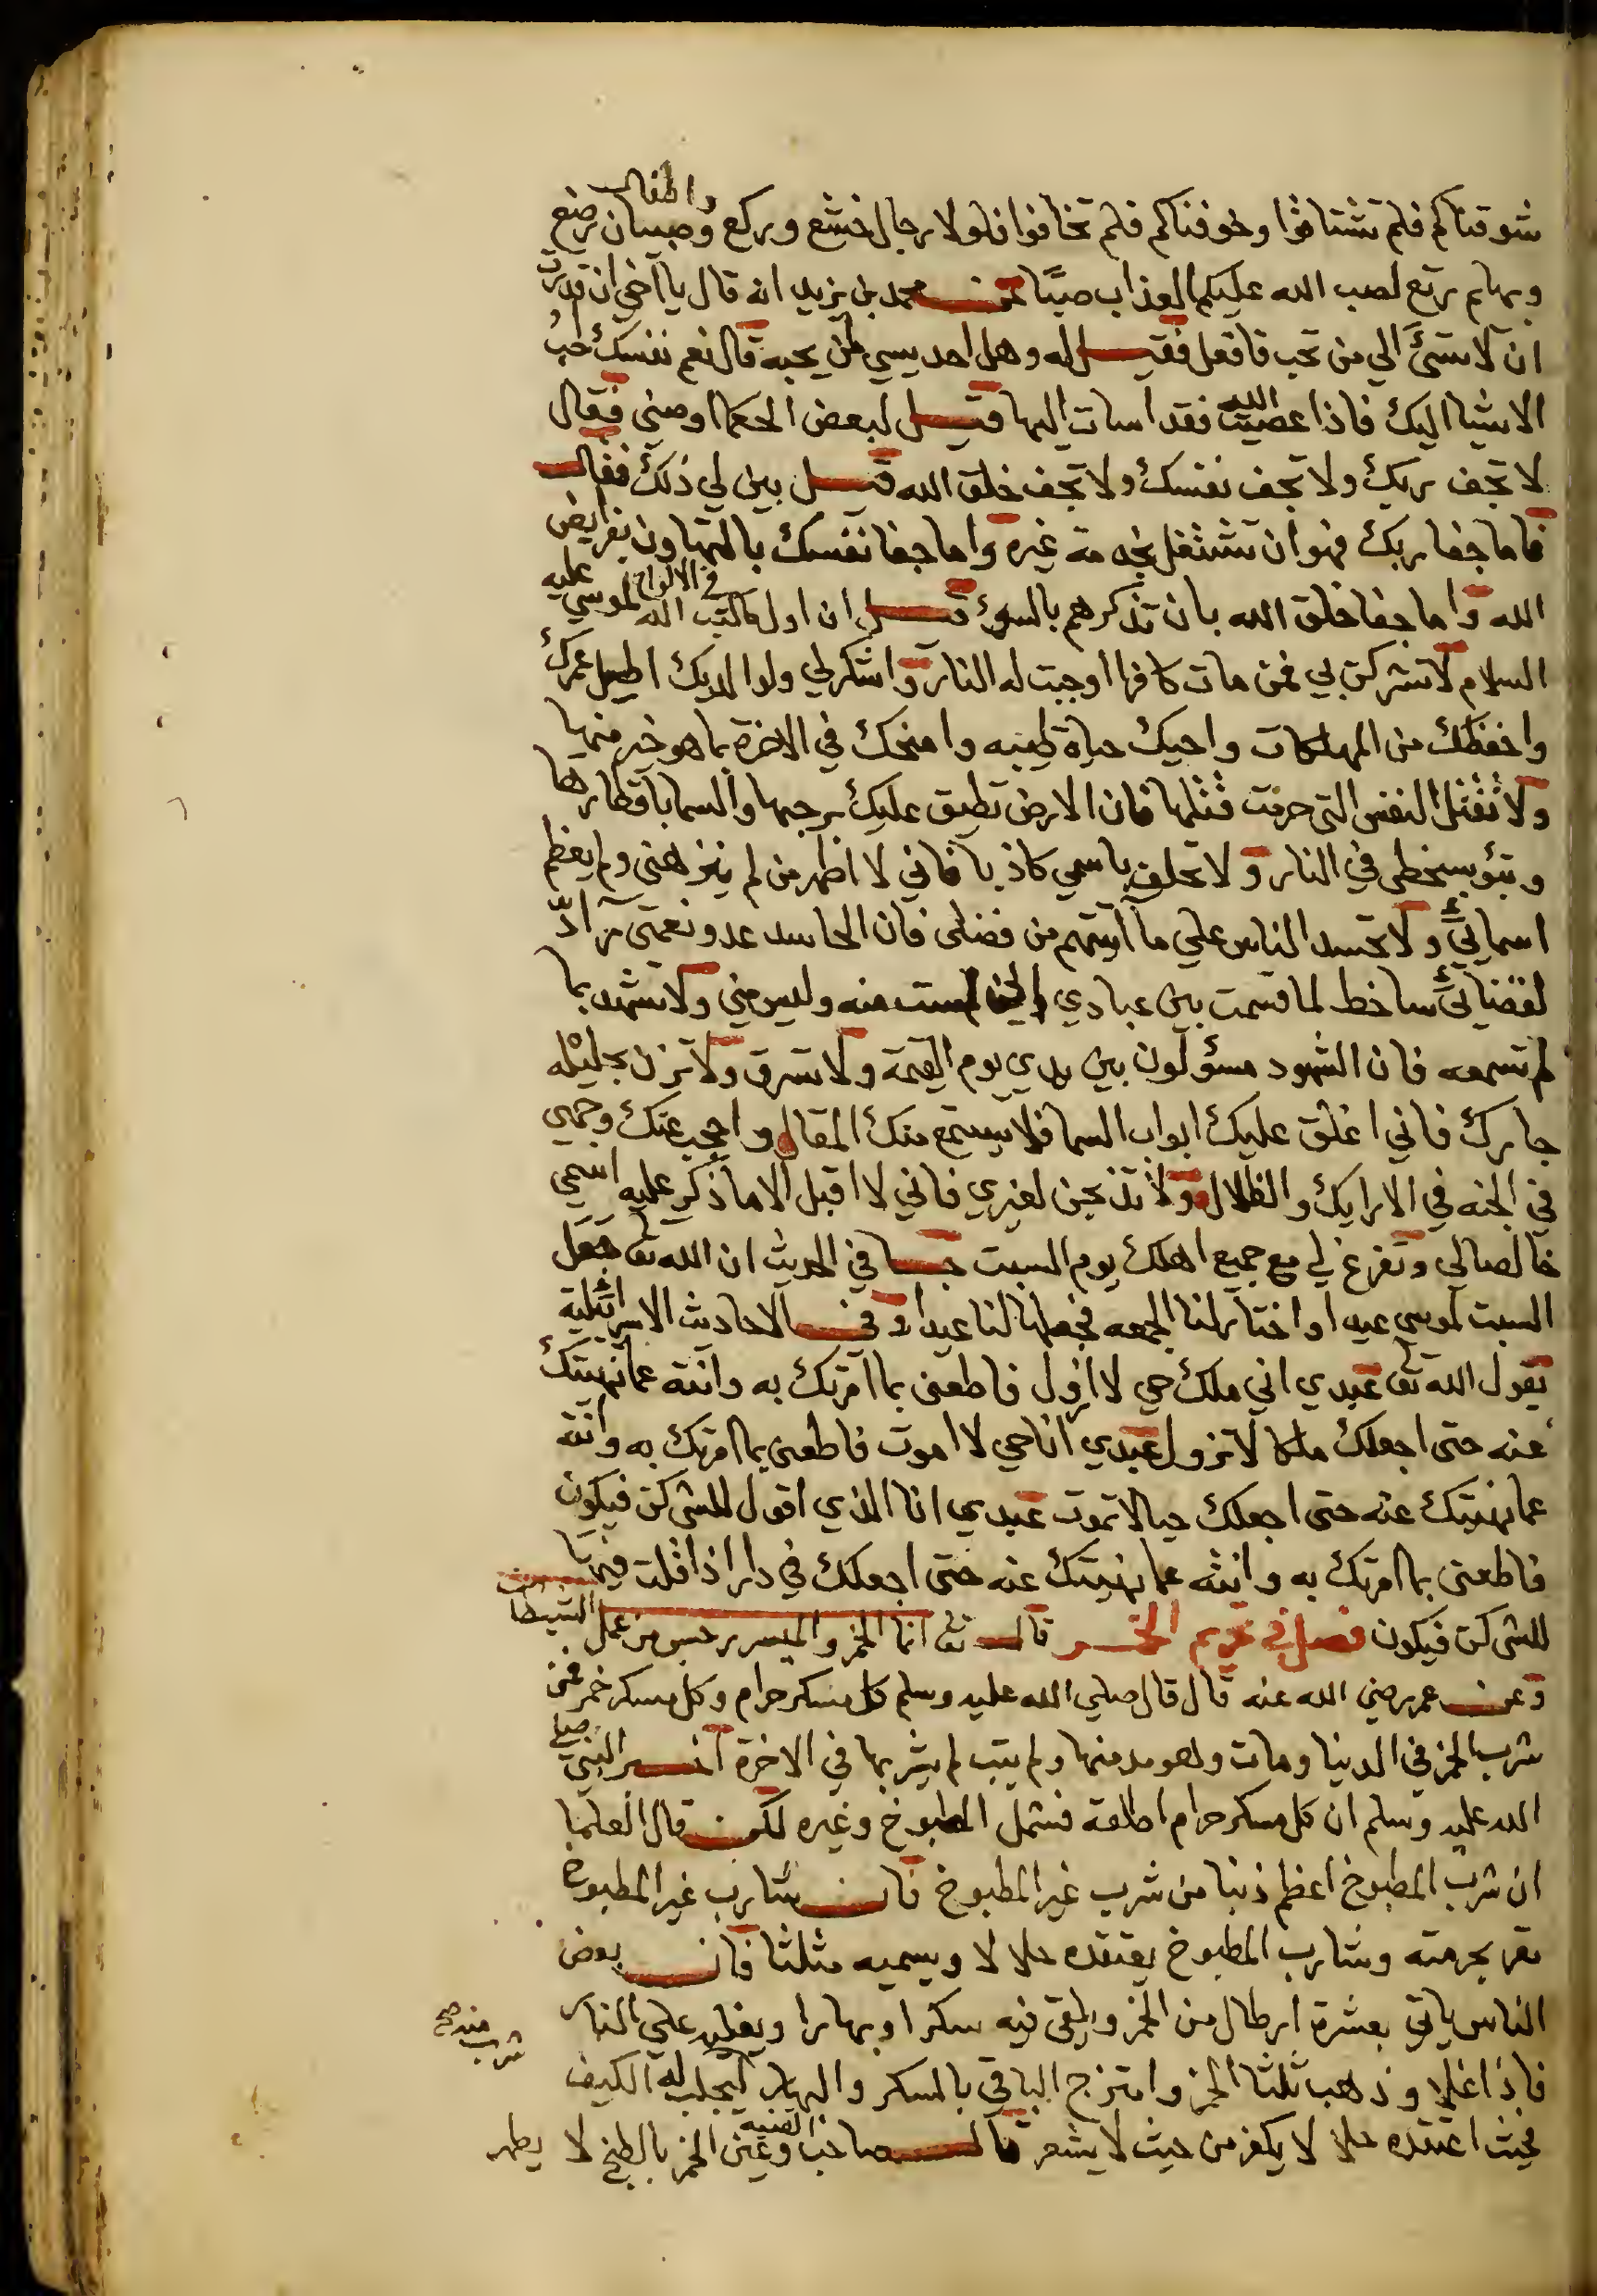 شوقناكم فلم تشتاقوا وخوفناكم فلم تخافوا فلولا رجال خشع وركع وصبيان رضع واطفال
وبهايم رتع لصب الله عليكم العذاب صبًا عن محمد بن يزيد انه قال يا اخي ان قدرت
ان لا تسئ الي من تحب فافعل فقيل له وهل احد يسي لمن يحبه قال نعم نفسك احب
الاشيا اليك فاذا عصيت الله فقد اسات اليها قيل لبعض الحكما اوصني فقال
لا تجف ربك ولا تجف نفسك ولا تجف خلق الله قيل بين لي ذلك فقال
فاما جفا ربك فهو ان تشتغل بخدمة غيره واما جفا نفسك بالتهاون بفرايض
الله واما جفا خلق الله بان تذكرهم بالسوء قيل ان اول ما كتب الله في الالواح لموسي عليه
السلام لا تشركن بي فمن مات كافرا اوجبت له النار واشكر لي ولوالديك اطيل عمرك
واحفظك من المهلكات واحيك حياة طيبه وامنحك في الاخرة بما هو خير منها
ولا تقتل النفس التي حرمت قتلها فان الارض تطبق عليك برحبها والسما باقطارها
وتبؤ بسخطي في النار ولا تحلف باسمي كاذبا فاني لا اطهر من لم ينزهني ولم يعظم
اسمائي ولا تحسد الناس علي ما آتيتهم من فضلي فان الحاسد عدو نعمتي رادّ
لقضائي ساخط لما قسمت بين عبادي لست منه وليس مني ولا تشهد بما
لم تسمعه فان الشهود مسؤلون بين يدي يوم القيمة ولا تسرق ولا تزن بحليله
جارك فاني اغلق عليك ابواب السما فلا يستمع منك المقال واحجب عنك وجهي
في الجنه في الارايك والظلال ولا تذبحن لغيري فاني لا اقبل الا ما ذكر عليه اسمي
خالصا لي وتفرغ لي مع جميع اهلك يوم السبت جا في الحديث ان الله تعا جعل
السبت لموسي عيدا واختار لنا الجمعه فجعلها لنا عيدا وفي الاحاديث الاسرائلية
يقول الله تعا عبدي اني ملك حي لا ازول فاطعني بما امرتك به وانته عما نهيتك
عنه حتى اجعلك ملكا لا تزول عبدي انا حي لا اموت فاطعني بما امرتك به وانته
عما نهيتك عنه حتى اجعلك حيا لا تموت عبدي انا الذي اقول للشي كن فيكون
فاطعني بما امرتك به وانته عما نهيتك عنه حتى اجعلك في دار اذا قلت فيها
للشي كن فيكون فصل في تحريم الخمر قال تعا انما الخمر والميسر رجس من عمل الشيطان
وعن عمر رضي الله عنه قال قال صلي الله عليه وسلم كل مسكر حرام وكل مسكر خمر فمن
شرب الخمر في الدنيا ومات وهو مدمنها ولم يتب لم يشربها في الاخرة النبي صلي
الله عليه وسلم ان كل مسكر حرام اطلقه فشمل المطبوخ وغيره لكن قال العلما
ان شرب المطبوخ اعظم ذنبا من شرب غير المطبوخ فان شارب غير المطبوخ
يقر بحرمته وشارب المطبوخ يعتقده حلالا ويسميه مثلثا فان بعض
الناس ياتي بعشرة ارطال من الخمر ويلقي فيه سكرا وبهارا ويغليه علي النار
فاذا غلا وذهب ثلثا الخمر وامتزج الباقي بالسكر والبهار ليجلب له الكيف شرب منه صح
فحيث اعتقده حلالا يكفر من حيث لا يشعر قال صاحب القنيه وعين الخمر بالطبخ لا يطهر